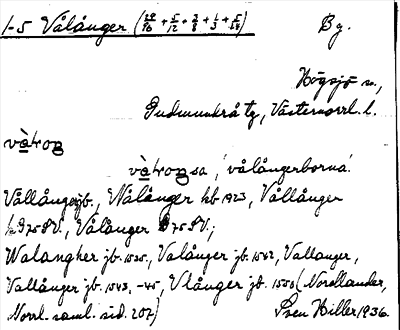 1-5 Vålånger (29/96 + 5/12 + 3/8 + 1/3 + 5/48) By.
Högsjö sn,
Gudmundrå tg, Västernorrl. l.
våloŋ
våloŋsa, 'vålångerborna'.
Vållånger jb., Wålånger kb. 1923, Vållånger
75 SV., Vålånger 75 SV.;
Walangher jb. 1535, Valånger jb. 1542, Vallanger,
Vallånger jb. 1543, -45, Vlånger jb. 1550 (Nordlander,
Norrl. saml. sid. 207) Sven Hiller 1936.